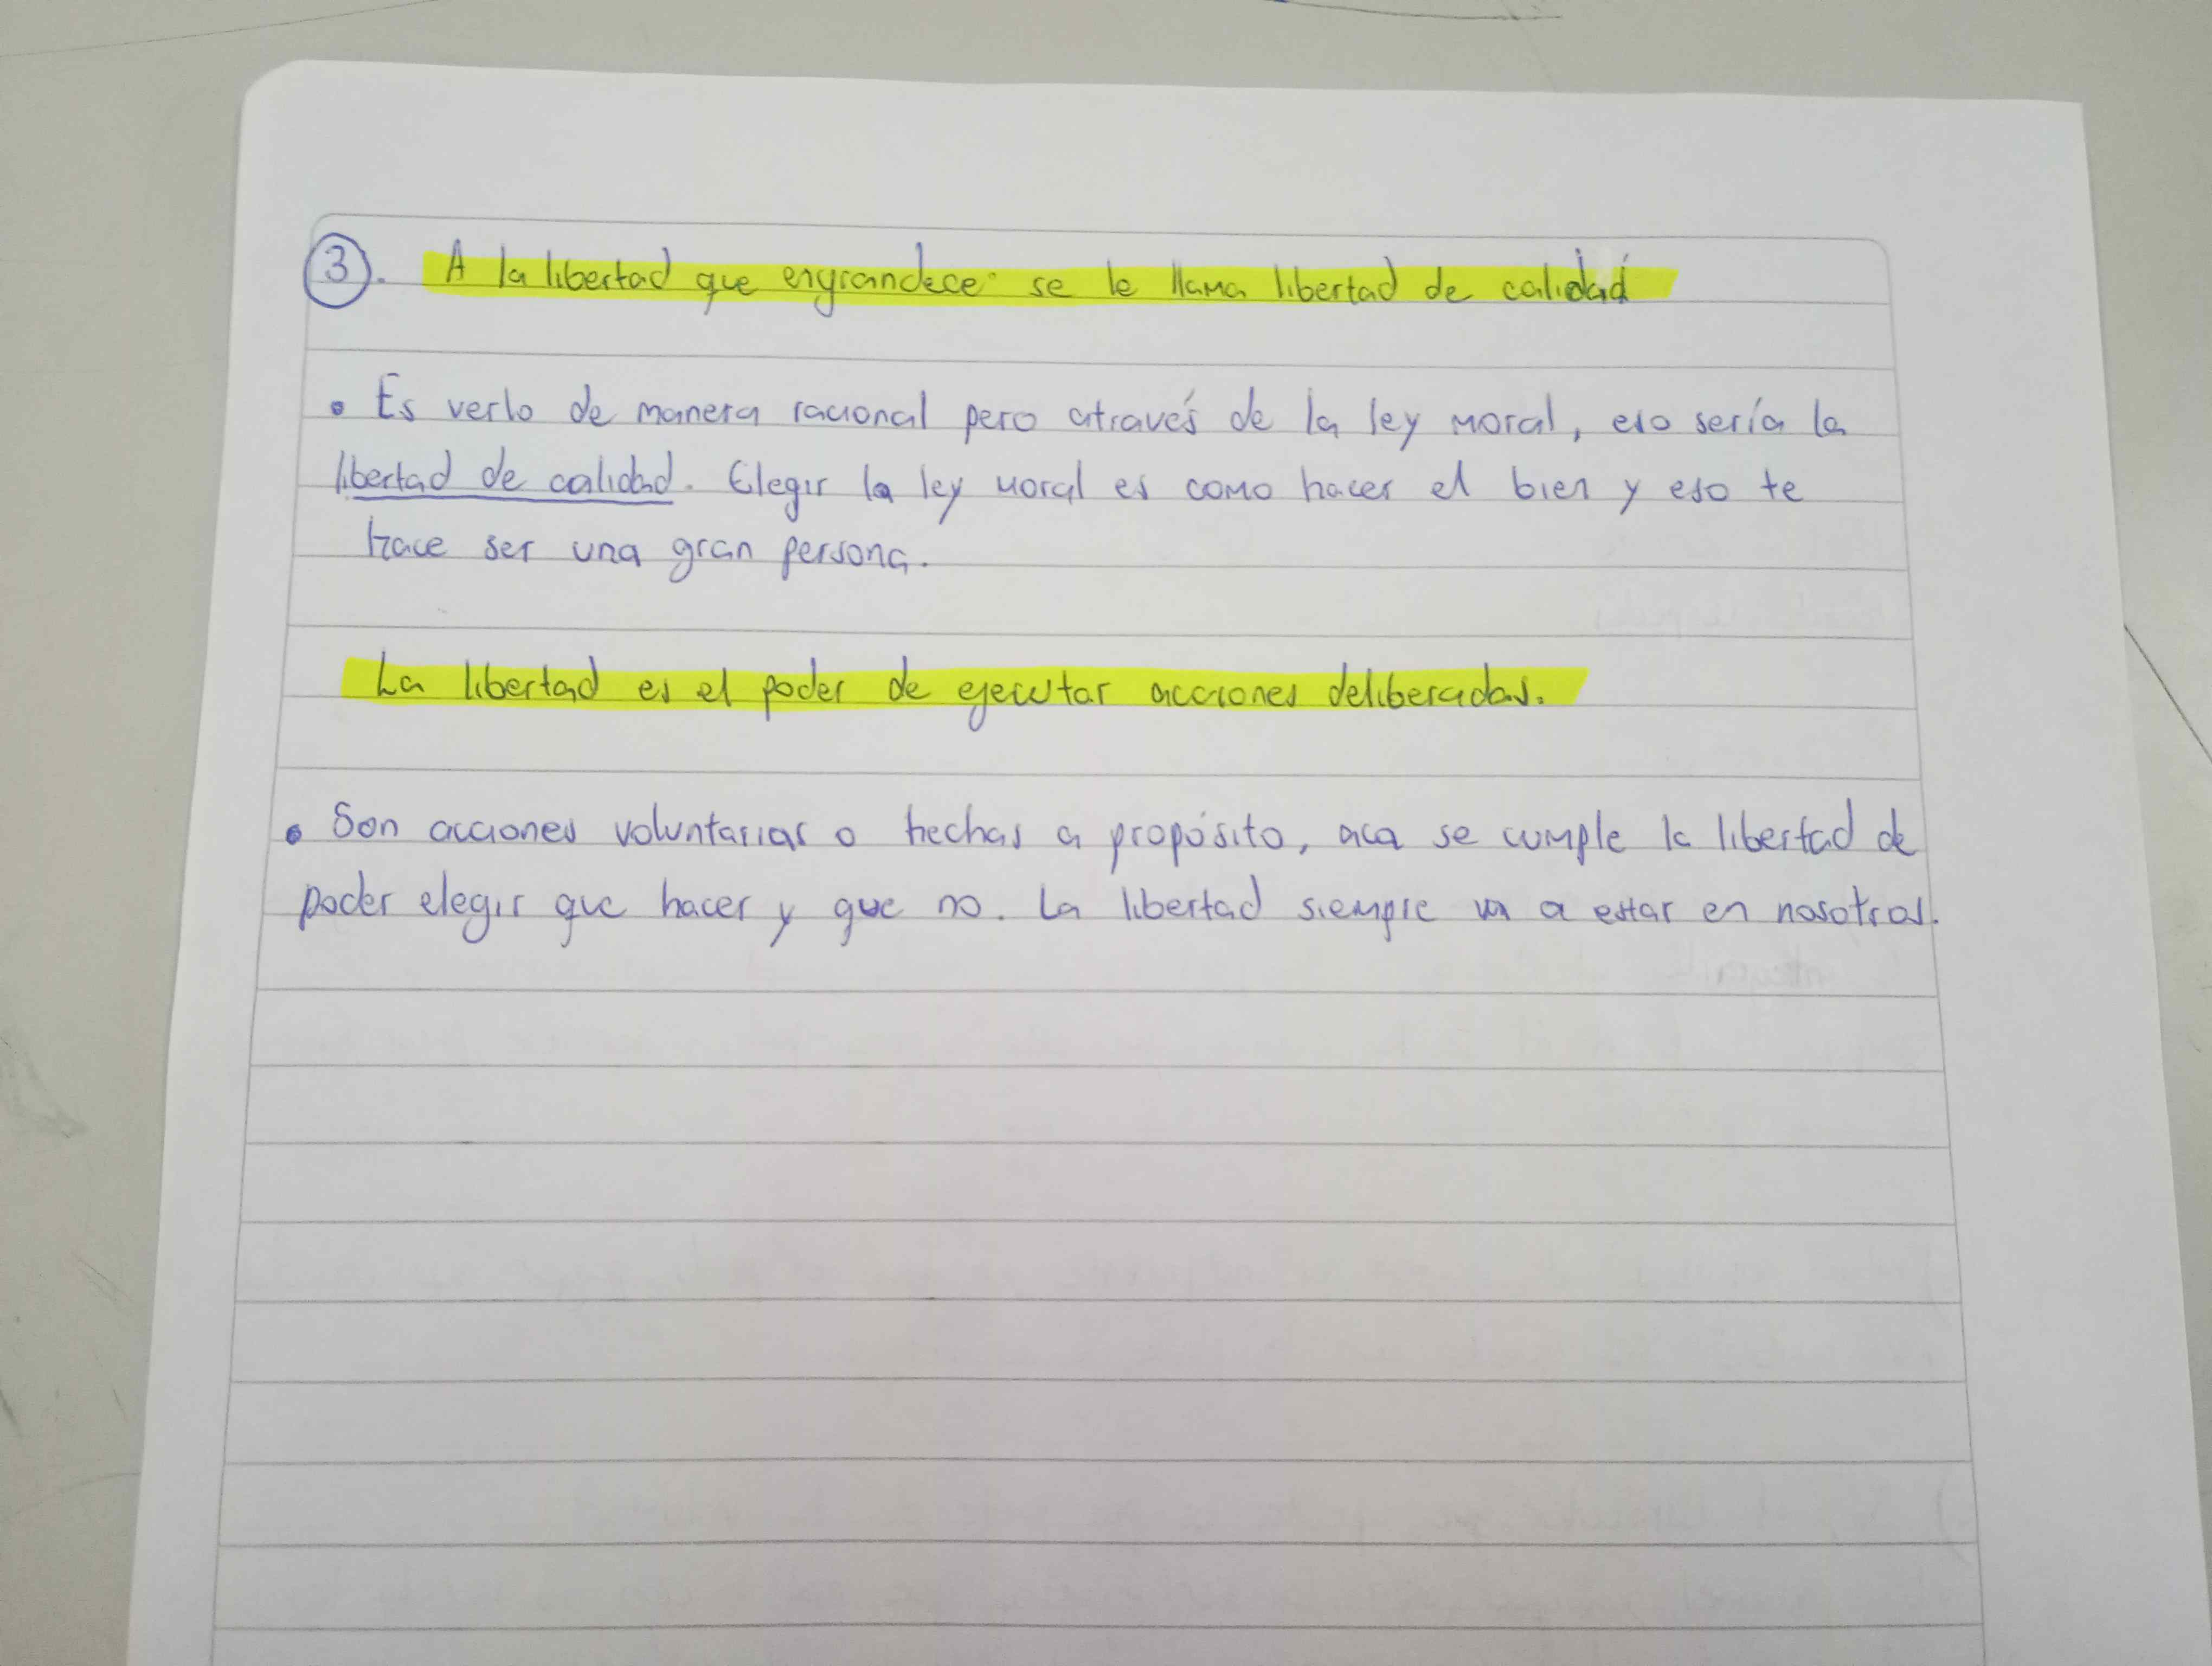 3). A la libertad que engrandece se le llama libertad de calidad
• Es verlo de manera racional pero através de la ley moral, eso sería la
libertad de calidad. Elegir la ley moral es como hacer el bien y eso te
hace ser una gran persona.
La libertad es el poder de ejecutar acciones deliberadas.
• Son acciones voluntarias o hechas a propósito, aca se cumple la libertad de
poder elegir que hacer y que no. La libertad siempre va a estar en nosotros.